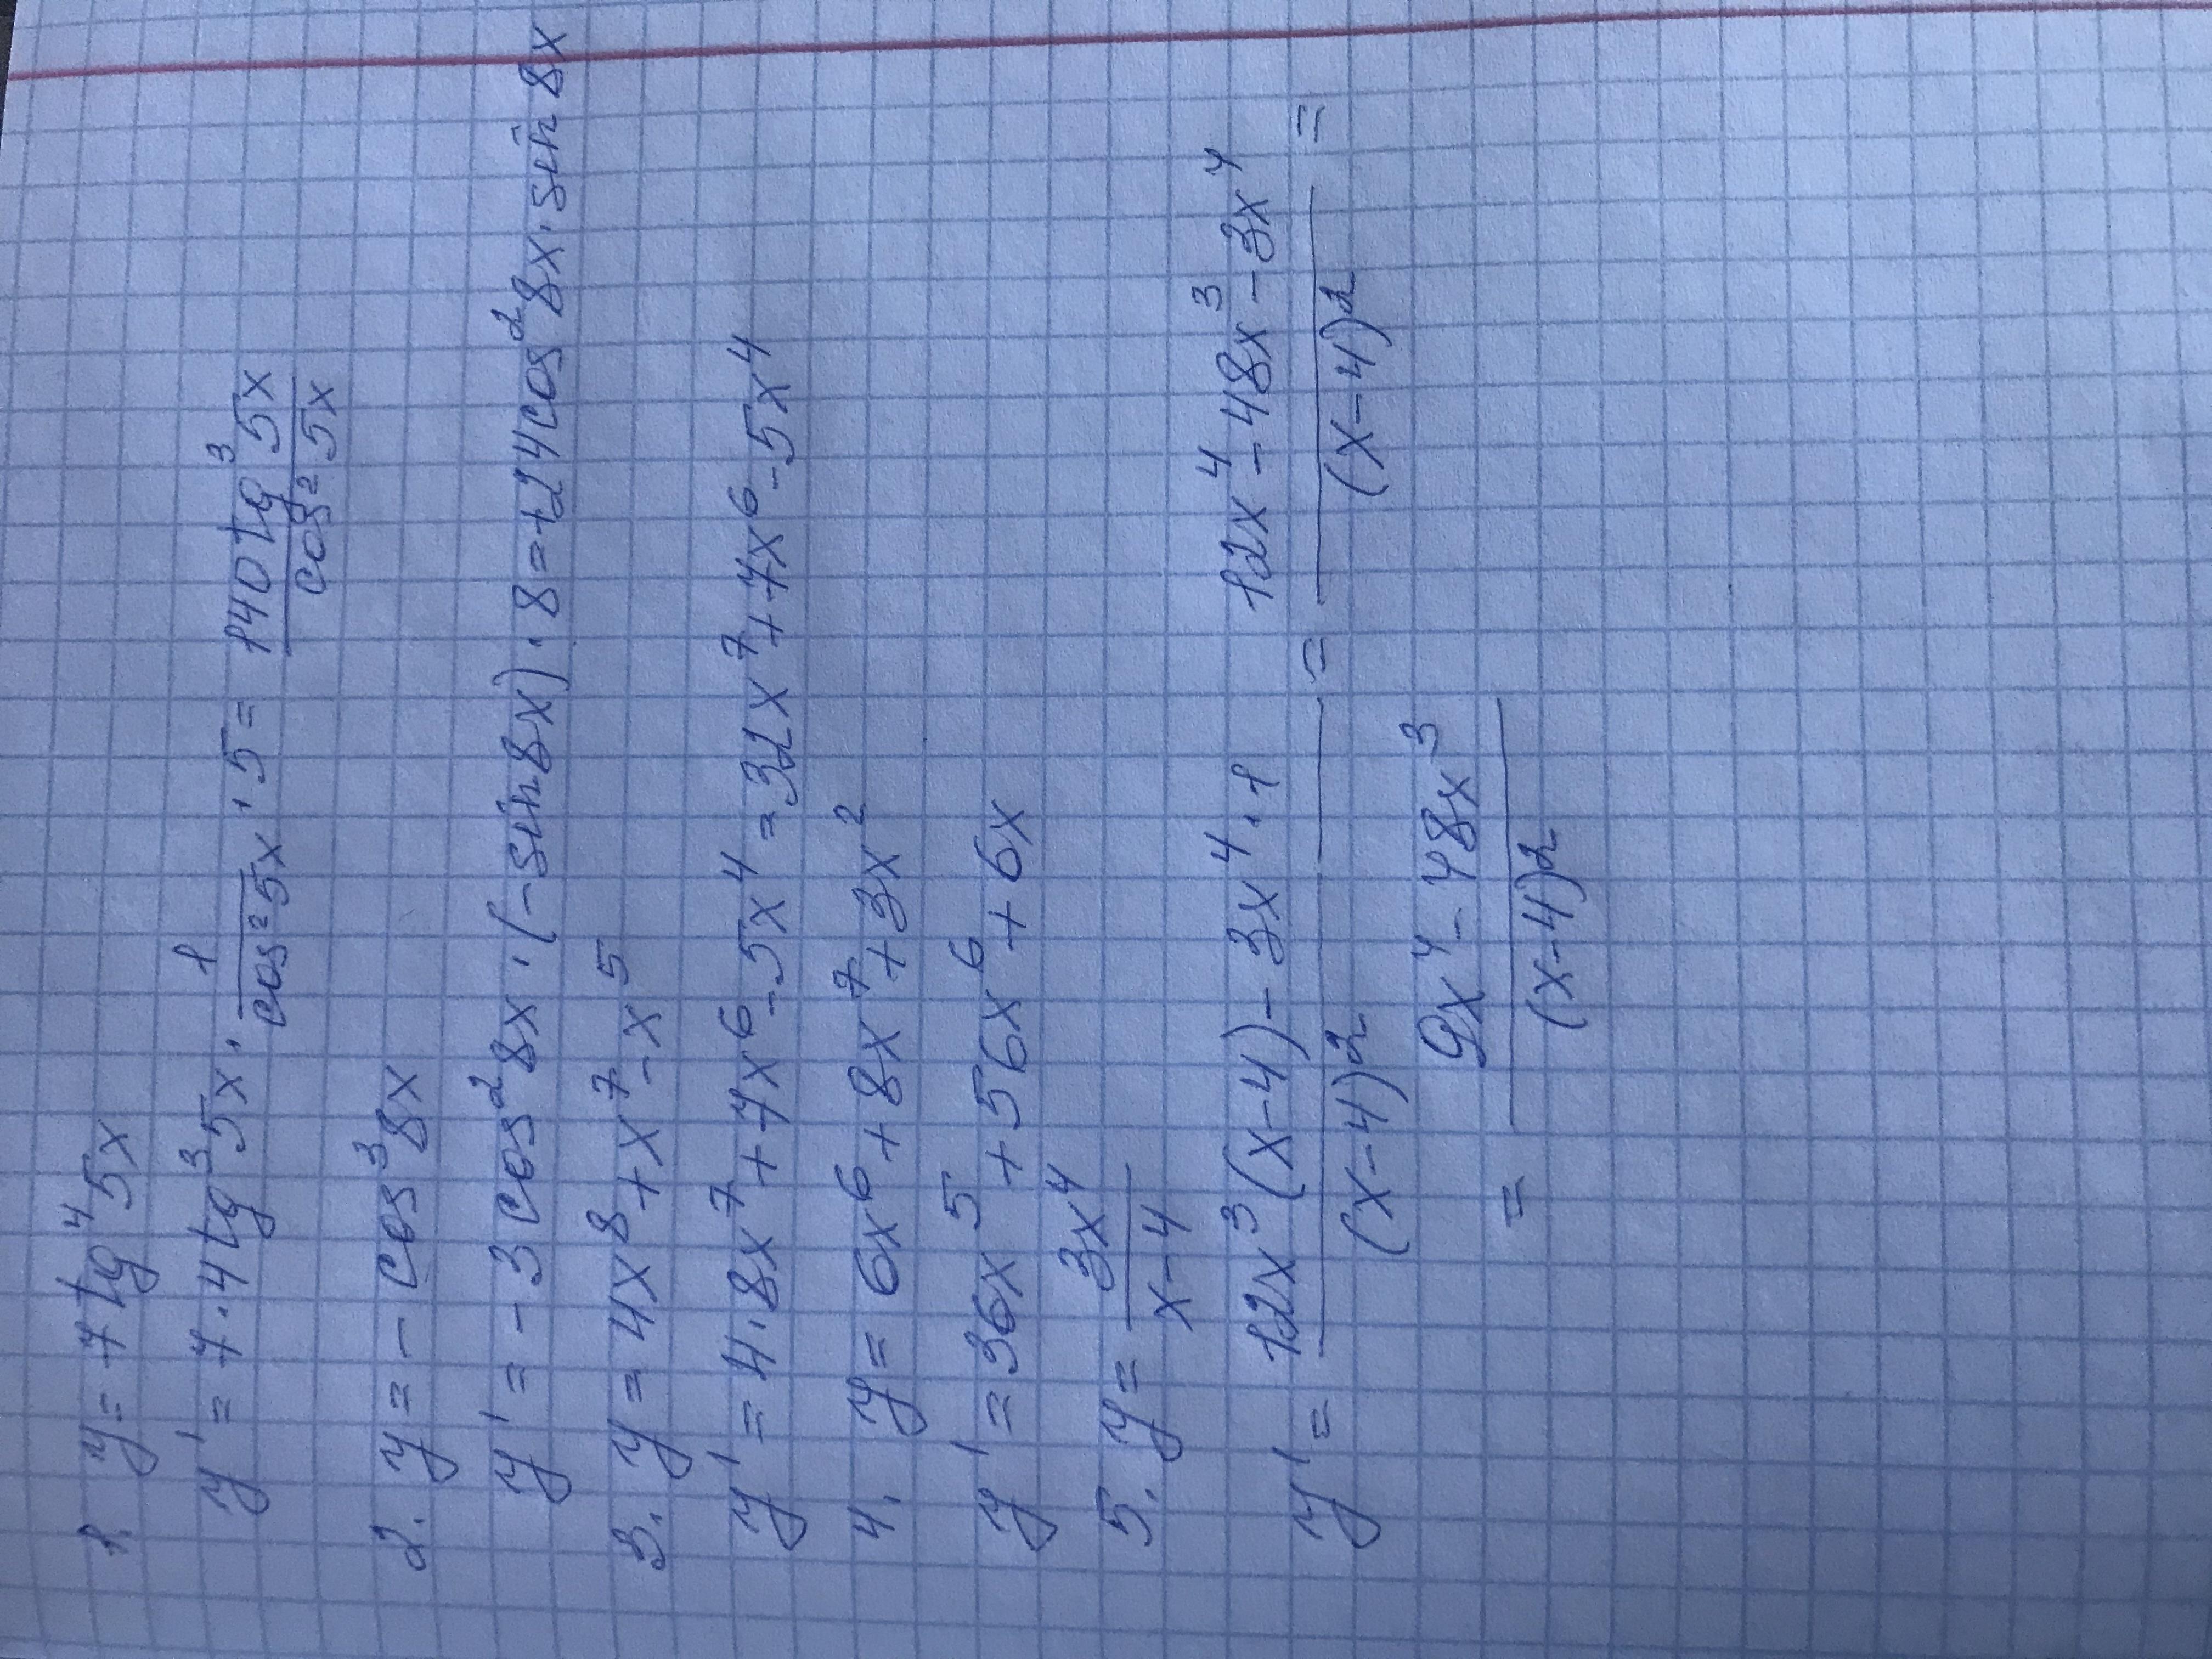 1. y = 7 tg⁴ 5x
y' = 7·4 tg³ 5x · 1/cos² 5x · 5 = 140 tg³ 5x / cos² 5x
2. y = - cos³ 8x
y' = -3 cos² 8x · (-sin 8x) · 8 = +24 cos² 8x · sin 8x
3. y = 4x⁸ + x⁷ - x⁵
y' = 4·8x⁷ + 7x⁶ - 5x⁴ = 32x⁷ + 7x⁶ - 5x⁴
4. y = 6x⁶ + 8x⁷ + 3x²
y' = 36x⁵ + 56x⁶ + 6x
5. y = 3x⁴ / x-4
y' = 12x³ (x-4) - 3x⁴·1 / (x-4)² = 12x⁴ - 48x³ - 3x⁴ / (x-4)² =
= 9x⁴ - 48x³ / (x-4)²